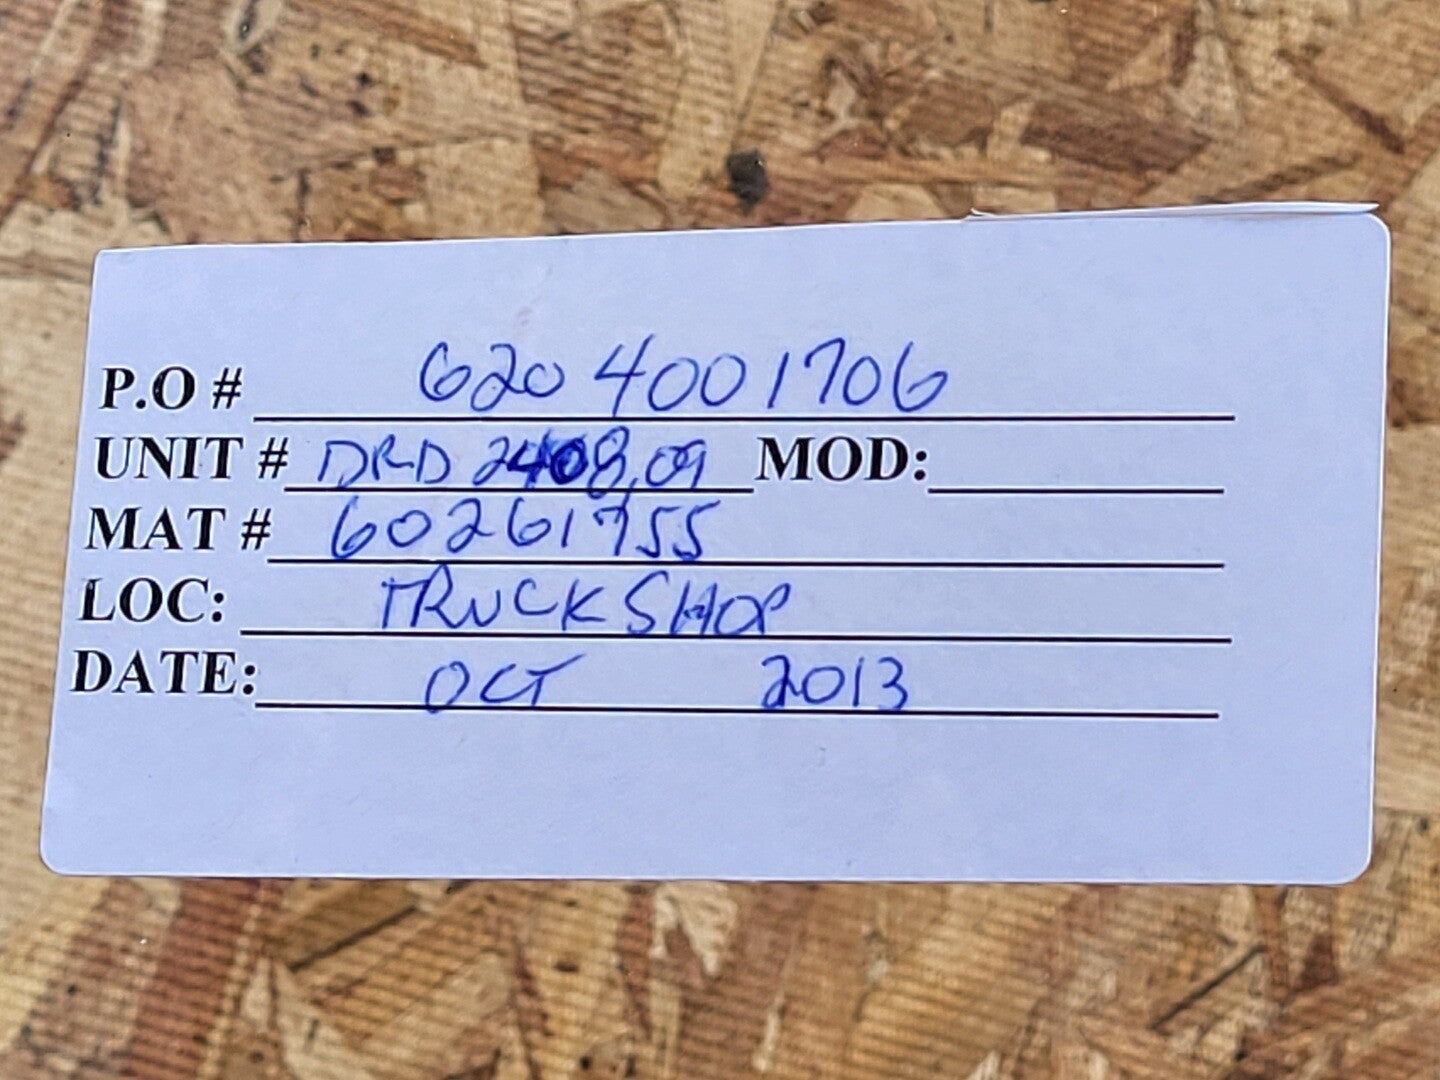 P.O # 6204001706
UNIT # DRD 2408,09 MOD:
MAT # 60261755
LOC: TRUCK SHOP
DATE: OCT 2013